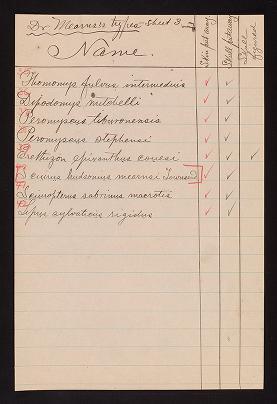 Dr. Mearns's types - Sheet 3
Name.
Skin put away
Skull put away
Thomomys fulvus intermedius
Dipodomys mitchelli
Peromyscus tiburonensis
Peromyscus stephensi
Erethizon epixanthus couesi
Sciurus hudsonius mearnsi Townsend
Sciuropterus sabrinus macrotis
Lepus sylvaticus rigidus